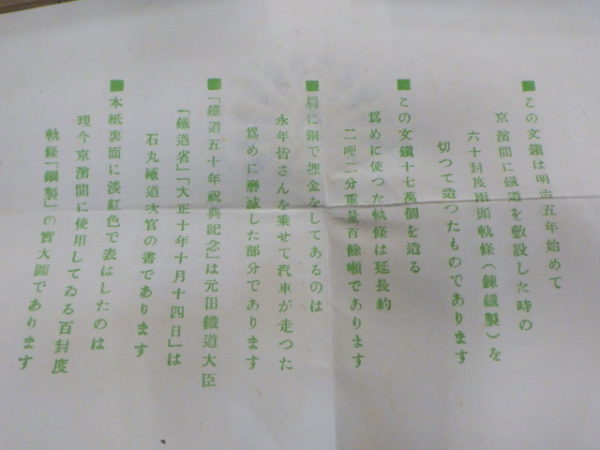 ■この文鎭は明治五年始めて
京濱間に鐵道を敷設した時の
六十封度兩頭軌條(鍊鐵製)を
切つて造つたものであります
■この文鎭十七萬個を造る
爲めに使つた軌條は延長約
二哩二分重量百餘噸であります
■肩に銅で埋金をしてあるのは
永年皆さんを乘せて汽車が走つた
爲めに磨滅した部分であります
■「鐵道五十年祝典記念」は元田鐵道大臣
「鐵道省」「大正十年十月十四日」は
石丸鐵道次官の書であります
■本紙裏面に淡紅色で表はしたのは
現今京濱間に使用してゐる百封度
軌條「鋼製」の實大圖であります